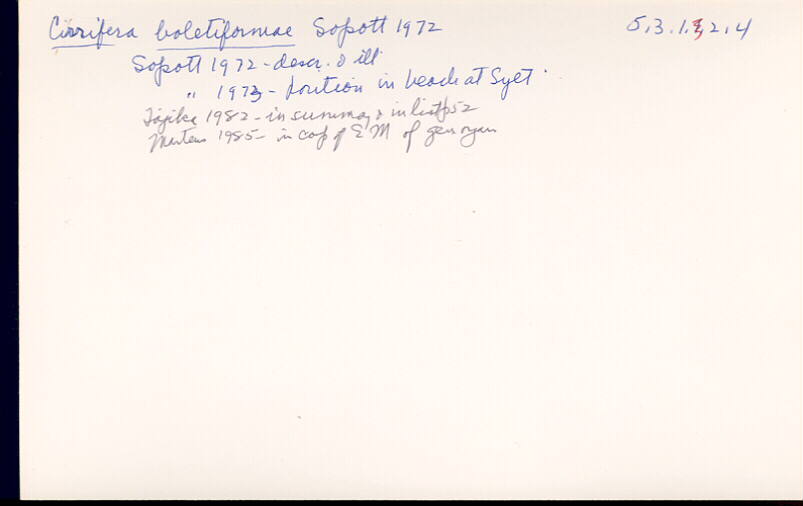 Cirrifera boletiformae Sopott 1972 5.3.1.3,2.4
Sopott 1972 - descr. & ill
" 1973 - position in beach at Sylt.
Tajika 1982 - in summary & in list p52
Martens 1985 - in cap of E'M of gen organ